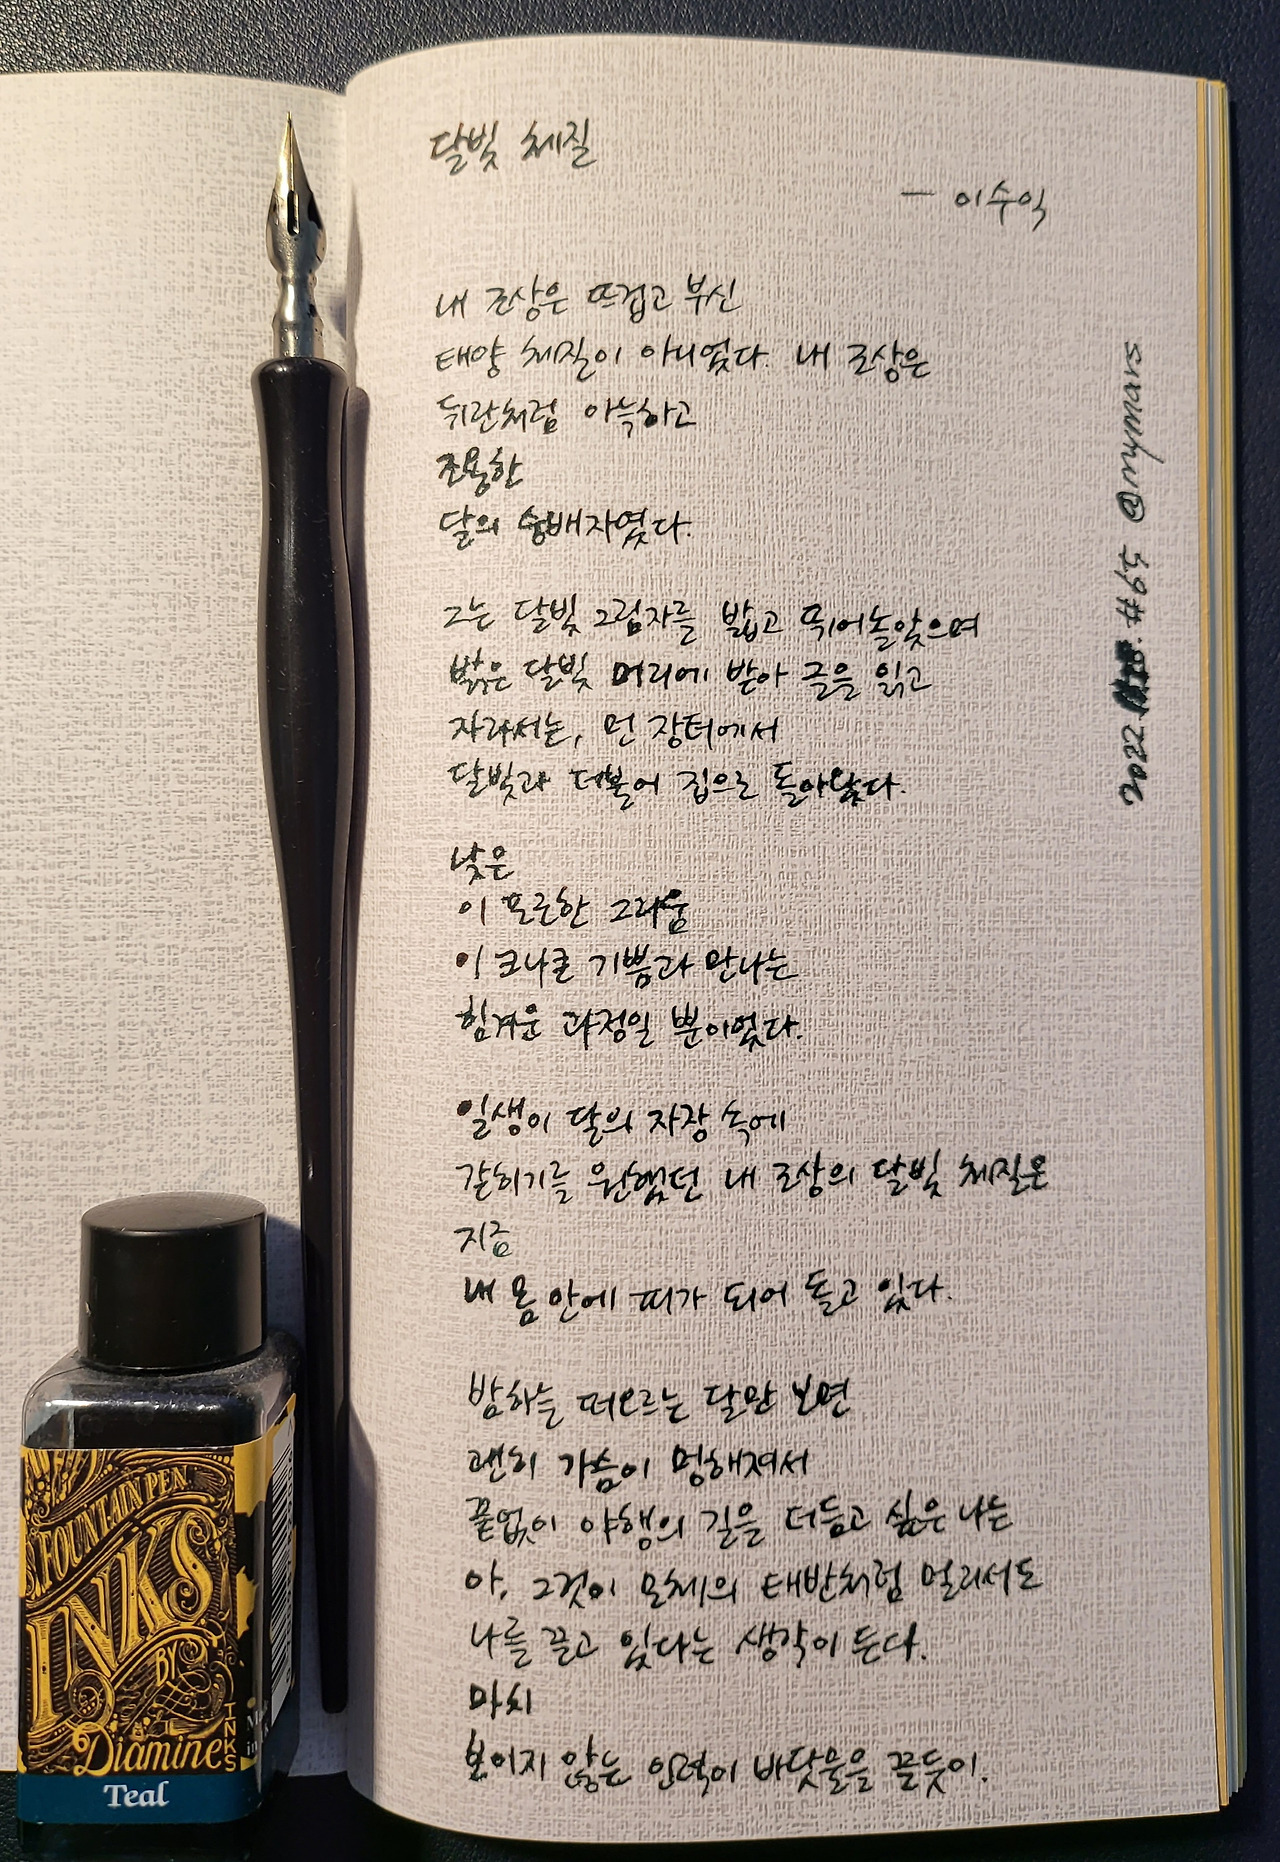 달빛 체질
— 이수익
내 조상은 뜨겁고 부신
태양 체질이 아니었다. 내 조상은
뒤란처럼 아늑하고
조용한
달의 숭배자였다.
그는 달빛 그림자를 밟고 뛰어놀았으며
밝은 달빛 머리에 받아 글을 읽고
자라서는, 먼 장터에서
달빛과 더불어 집으로 돌아왔다.
낮은
이 포근한 그리움
이 크나큰 기쁨과 만나는
힘겨운 과정일 뿐이었다.
일생이 달의 자장 속에
갇히기를 원했던 내 조상의 달빛 체질은
지금
내 몸 안에 피가 되어 돌고 있다.
밤하늘 떠오르는 달만 보면
괜히 가슴이 멍해져서
끝없이 야행의 길을 더듬고 싶은 나는
아, 그것이 모체의 태반처럼 멀리서도
나를 끌고 있다는 생각이 든다.
마치
보이지 않는 인력이 바닷물을 끌듯이.
2022
FOUNTAIN PEN
INKS
BY
Diamine
INKS
Teal